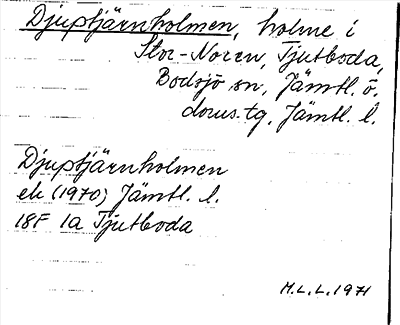 Djuptjärnholmen, holme i
Stor-Noren, Tjutboda,
Bodsjö sn, Jämtl. ö.
doms.tg, Jämtl. l.
Djuptjärnholmen
ek (1970) Jämtl. l.
18F 1a Tjutboda
M.L.L. 1971